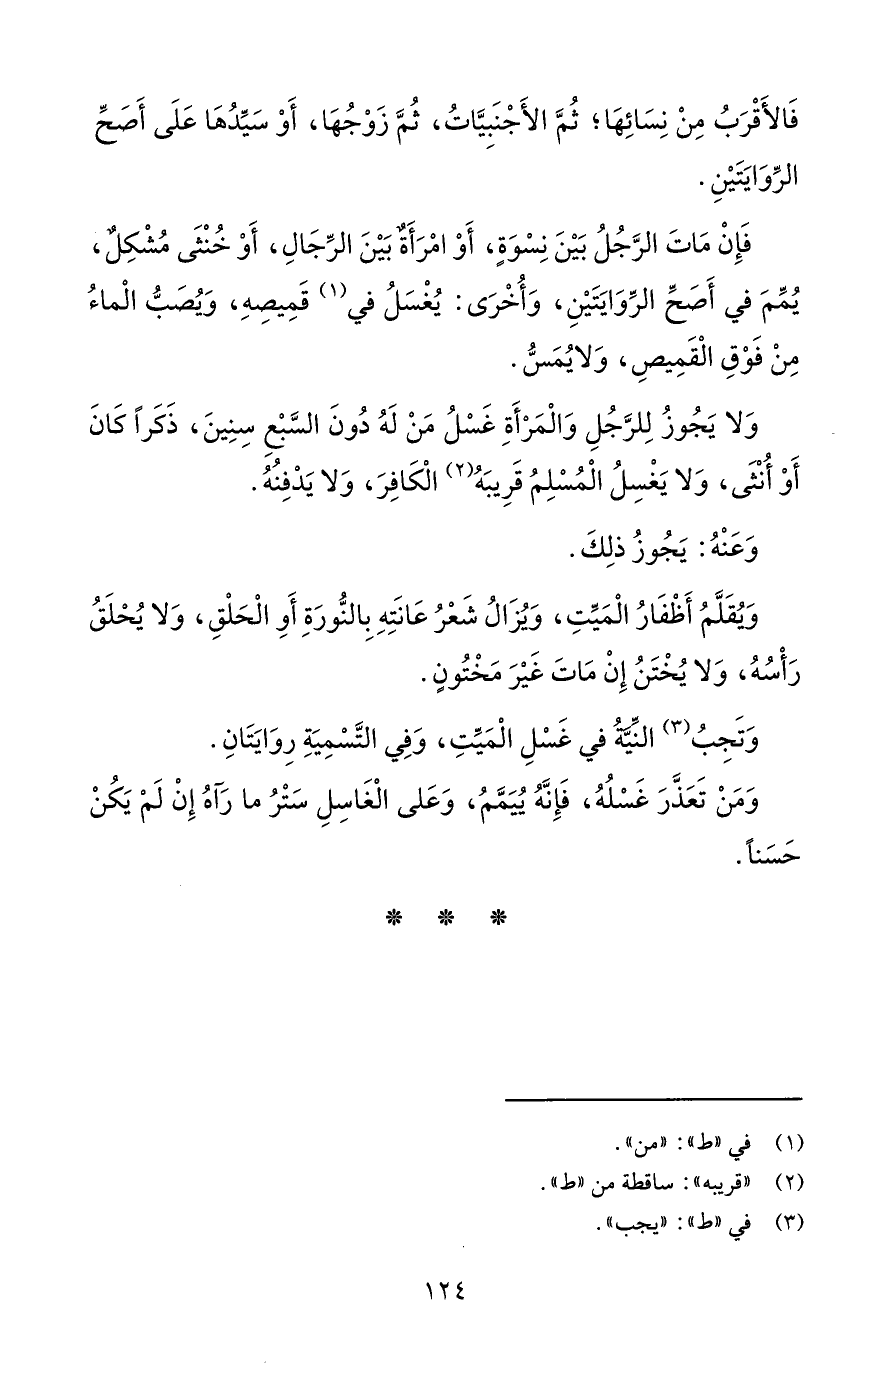 فَالأَقْرَبُ مِنْ نِسَائِهَا؛ ثُمَّ الأَجْنَبِيَّاتُ، ثُمَّ زَوْجُهَا، أَوْ سَيِّدُهَا عَلَى أَصَحِّ
الرِّوَايَتَيْنِ.
فَإِنْ مَاتَ الرَّجُلُ بَيْنَ نِسْوَةٍ، أَوْ امْرَأَةٌ بَيْنَ الرِّجَالِ، أَوْ خُنْثَى مُشْكِلٌ،
يُمِّمَ في أَصَحِّ الرِّوَايَتَيْنِ، وَأُخْرَى: يُغْسَلُ في(١) قَمِيصِهِ، وَيُصَبُّ الْماءُ
مِنْ فَوْقِ الْقَمِيصِ، وَلايُمَسُّ.
وَلا يَجُوزُ لِلرَّجُلِ وَالْمَرْأَةِ غَسْلُ مَنْ لَهُ دُونَ السَّبْعِ سِنِينَ، ذَكَراً كَانَ
أَوْ أُنْثَى، وَلا يَغْسِلُ الْمُسْلِمُ قَرِيبَهُ(٢) الْكَافِرَ، وَلا يَدْفِنُهُ.
وَعَنْهُ: يَجُوزُ ذلِكَ.
وَيُقَلَّمُ أَظْفَارُ الْمَيِّتِ، وَيُزَالُ شَعْرُ عَانَتِهِ بِالنُّورَةِ أَوِ الْحَلْقِ، وَلا يُحْلَقُ
رَأْسُهُ، وَلا يُخْتَنُ إِنْ مَاتَ غَيْرَ مَخْتُونٍ.
وَتَجِبُ(٣) النِّيَّةُ في غَسْلِ الْمَيِّتِ، وَفِي التَّسْمِيَةِ رِوَايَتَانِ.
وَمَنْ تَعَذَّرَ غَسْلُهُ، فَإِنَّهُ يُيَمَّمُ، وَعَلى الْغَاسِلِ سَتْرُ ما رَآهُ إِنْ لَمْ يَكُنْ
حَسَناً.
* * *
(١) في «ط»: «من».
(٢) «قريبه»: ساقطة من «ط».
(٣) في «ط»: «يجب».
١٢٤